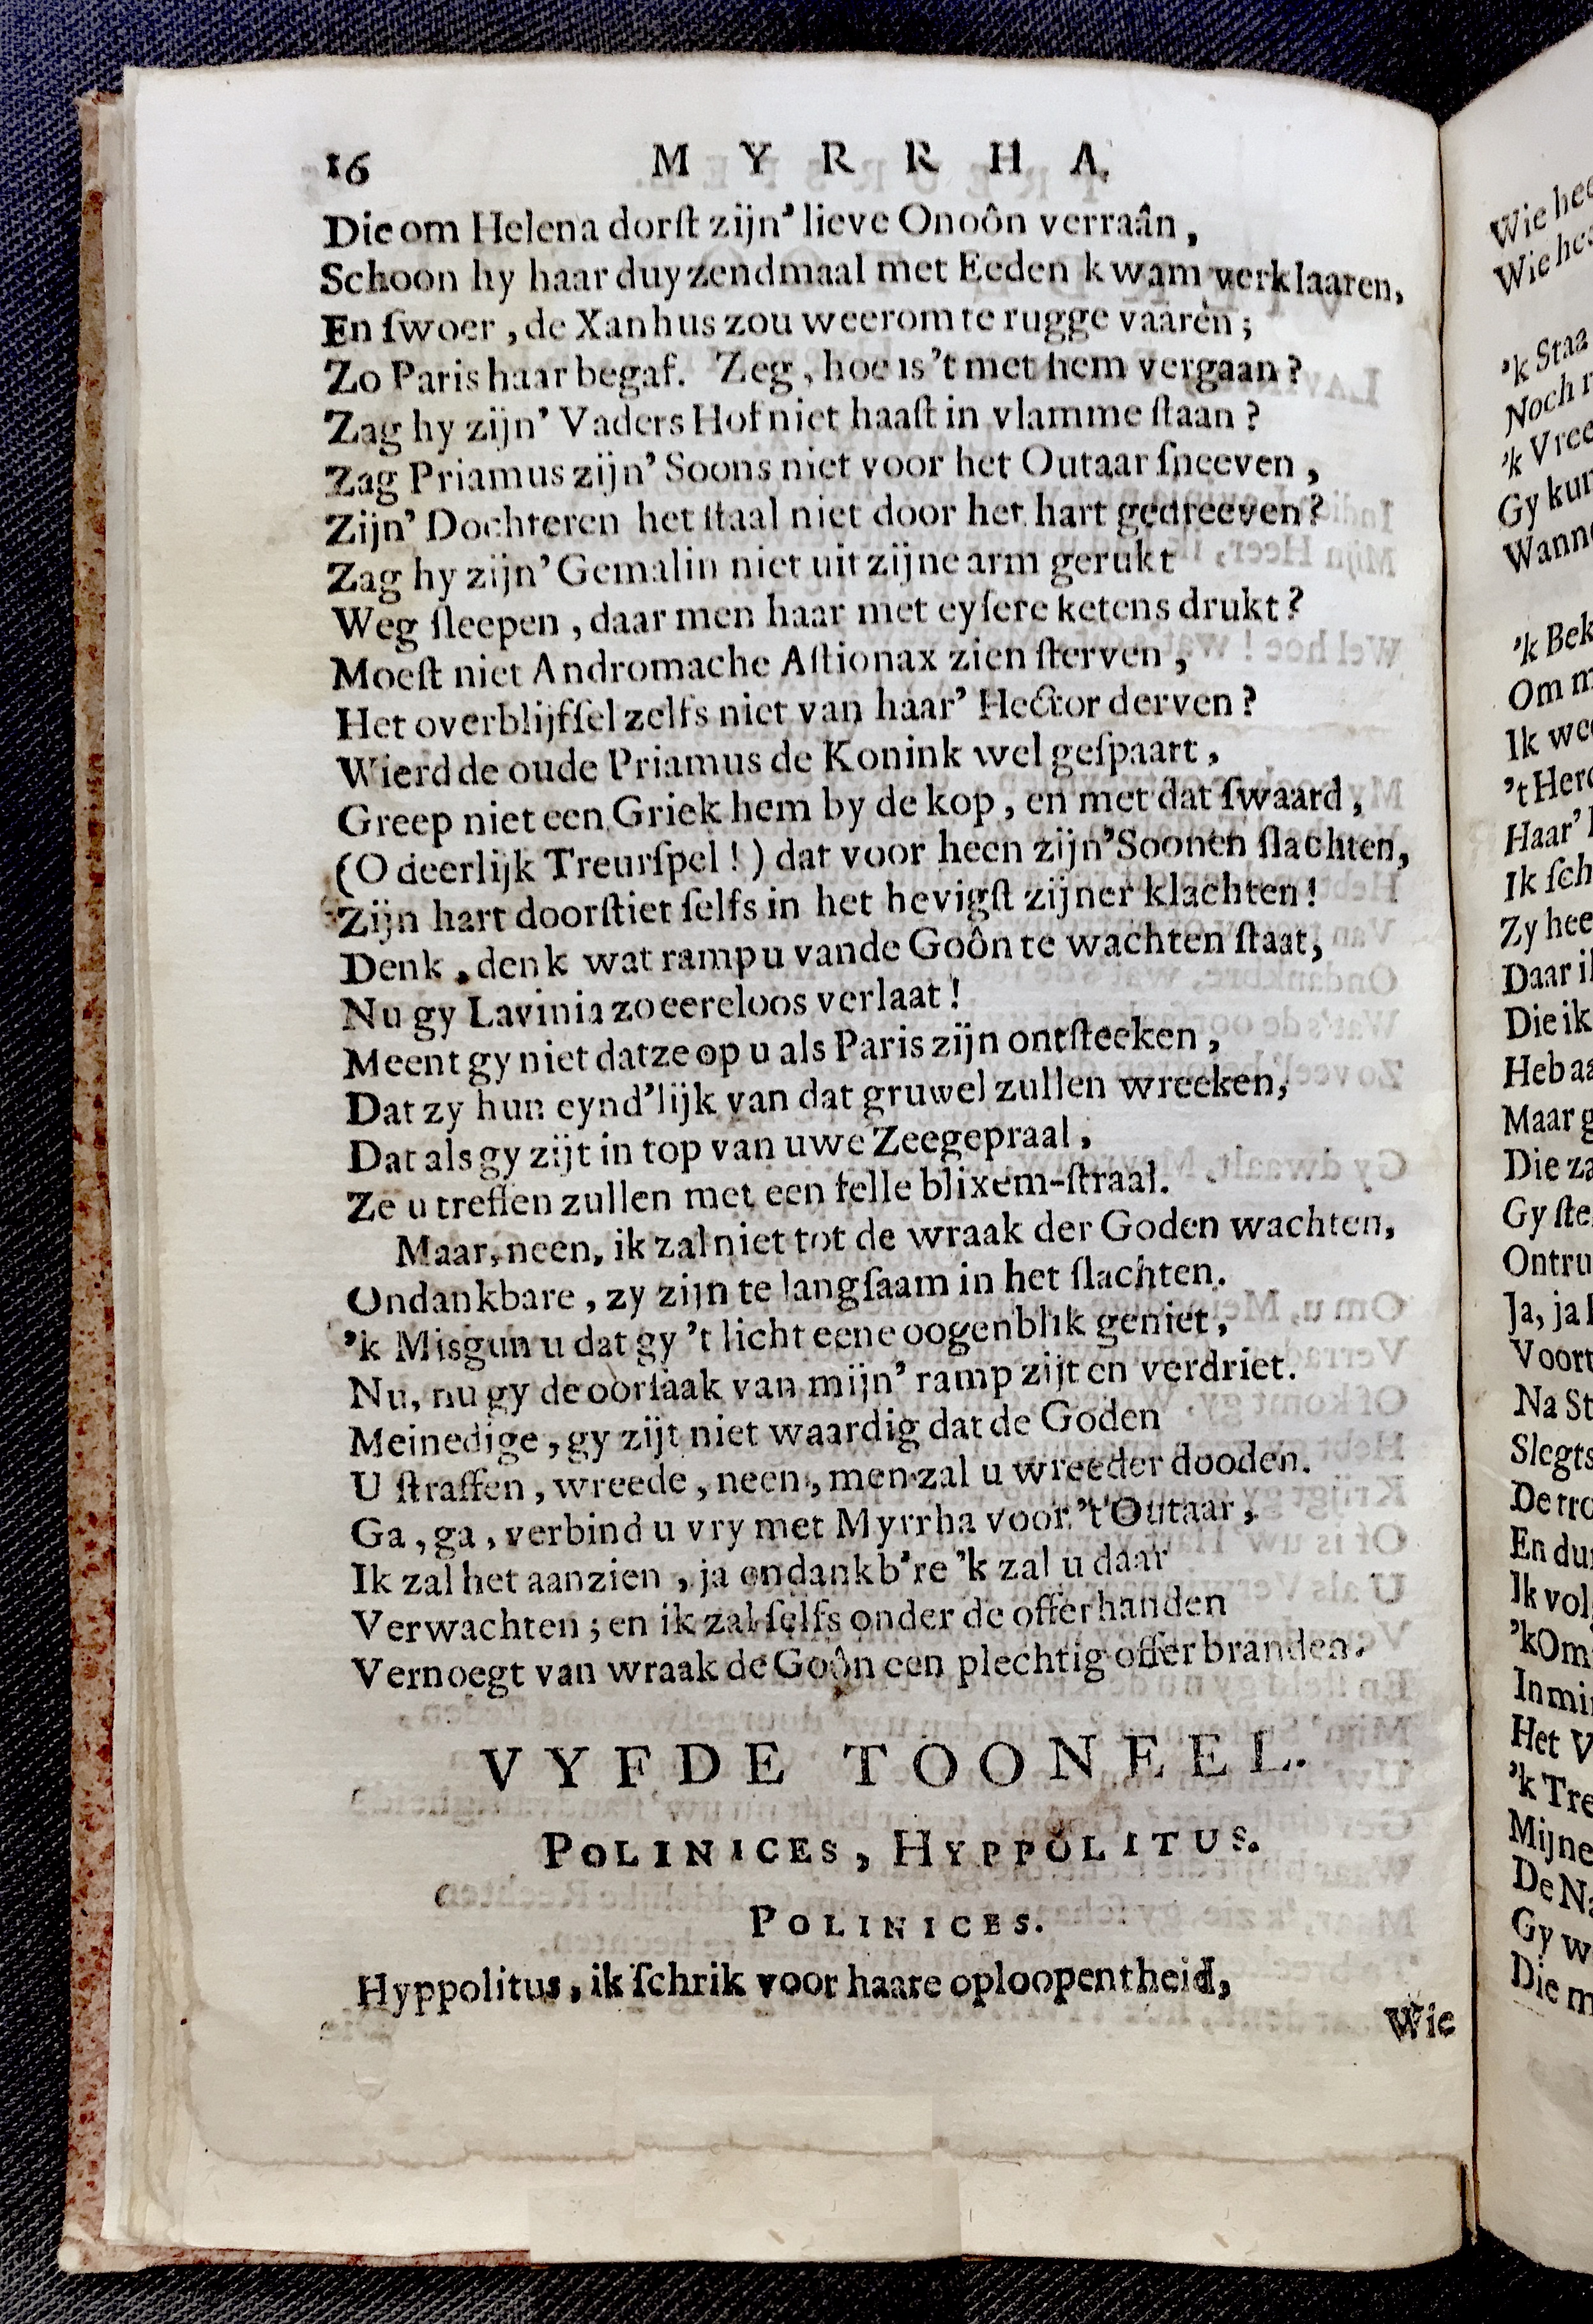 16 MYRRHA.
Die om Helena dorſt zijn' lieve Onoôn verraân,
Schoon hy haar duyzendmaal met Eeden kwam verklaaren,
En ſwoer, de Xanhus zou weerom te rugge vaaren;
Zo Paris haar begaf. Zeg, hoe is 't met hem vergaan?
Zag hy zijn' Vaders Hof niet haaſt in vlamme ſtaan?
Zag Priamus zijn' Soons niet voor het Outaar ſneeven,
Zijn' Dochteren het ſtaal niet door het hart gedreeven?
Zag hy zijn' Gemalin niet uit zijne arm gerukt
Weg ſleepen, daar men haar met eyſere ketens drukt?
Moeſt niet Andromache Aſtionax zien ſterven,
Het overblijfſel zelfs niet van haar' Hector derven?
Wierd de oude Priamus de Konink wel geſpaart,
Greep niet een Griek hem by de kop, en met dat ſwaard,
(O deerlijk Treurſpel!) dat voor heen zijn' Soonen ſlachten,
Zijn hart doorſtiet ſelfs in het hevigſt zijner klachten!
Denk, denk wat ramp u vande Goôn te wachten ſtaat,
Nu gy Lavinia zo eereloos verlaat!
Meent gy niet datze op u als Paris zijn ontſteeken,
Dat zy hun eynd'lijk van dat gruwel zullen wreeken,
Dat als gy zijt in top van uwe Zeegepraal,
Ze u treffen zullen met een felle blixem-ſtraal.
Maar, neen, ik zal niet tot de wraak der Goden wachten,
Ondankbare, zy zijn te langſaam in het ſlachten.
'k Misgun u dat gy 't licht eene oogenblik geniet,
Nu, nu gy de oorſaak van mijn' ramp zijt en verdriet.
Meinedige, gy zijt niet waardig dat de Goden
U ſtraffen, wreede, neen, men zal u wreeder dooden.
Ga, ga, verbind u vry met Myrrha voor 't Outaar,
Ik zal het aanzien, ja ondankb're 'k zal u daar
Verwachten; en ik zal ſelfs onder de offerhanden
Vernoegt van wraak de Goôn een plechtig offer branden.
VYFDE TOONEEL.
POLINICES, HYPPOLITUS.
POLINICES.
Hyppolitus, ik ſchrik voor haare oploopentheid,
Wie
Wie
Wie
'k Staa
Noch
'k
Gy
'k
Om
Ik
't
Haar'
Ik
Zy
Daar
Die ik
Heb
Maar
Die
Gy
Ja, ja
Na
De
En
Ik
In
Het
'k
Mijne
De
Gy
Die